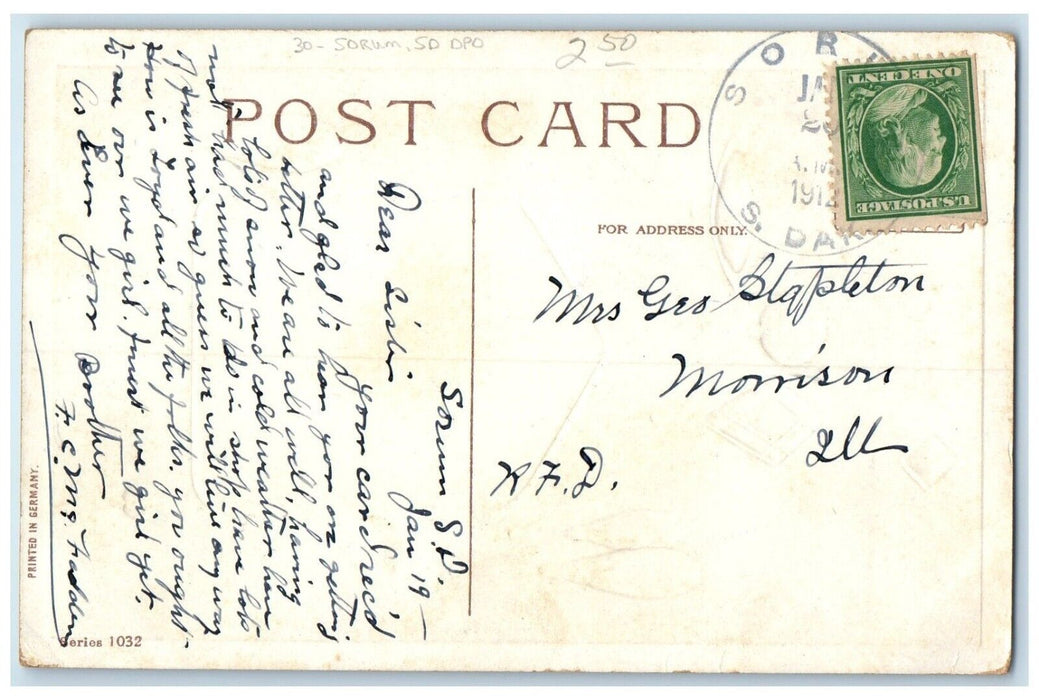 30 - SORUM, SD DPO
2 50
POST CARD
SORU
JAN
A.M.
1912
S. DAK
ONE CENT
U.S. POSTAGE
FOR ADDRESS ONLY.
Mrs Geo Stapleton
Morrison
Ill
R.F.D.
Sorum S.D.
Jan 19 —
Dear Sister
Your card rec'd
and glad to hear you are getting
better. We are all well, having
lots of snow and cold weather here
not had much to do in store have lots
of fresh air so guess we will live any way
How is Loyd and all the folks. you ought
to see our wee girl. Finest wee girl yet.
As Ever your Brother
F. C. McFadden
PRINTED IN GERMANY.
Series 1032